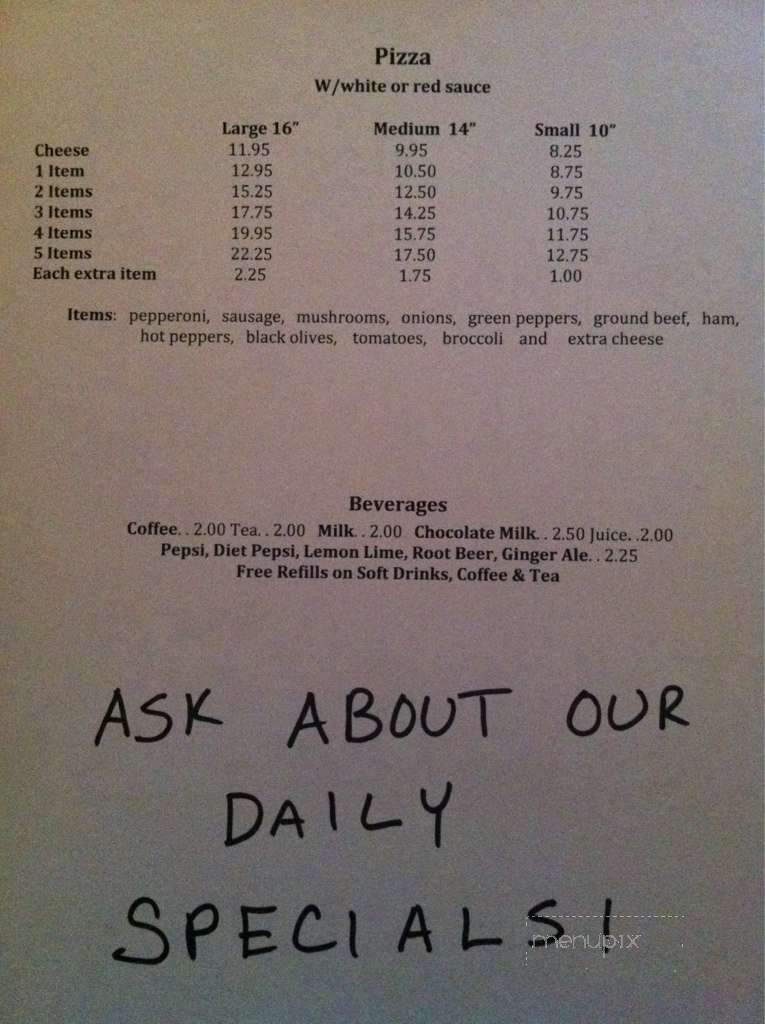 Pizza
W/white or red sauce
Large 16" Medium 14" Small 10"
Cheese 11.95 9.95 8.25
1 Item 12.95 10.50 8.75
2 Items 15.25 12.50 9.75
3 Items 17.75 14.25 10.75
4 Items 19.95 15.75 11.75
5 Items 22.25 17.50 12.75
Each extra item 2.25 1.75 1.00
Items: pepperoni, sausage, mushrooms, onions, green peppers, ground beef, ham,
hot peppers, black olives, tomatoes, broccoli and extra cheese
Beverages
Coffee. . 2.00 Tea. . 2.00 Milk. . 2.00 Chocolate Milk. . 2.50 Juice. .2.00
Pepsi, Diet Pepsi, Lemon Lime, Root Beer, Ginger Ale. . 2.25
Free Refills on Soft Drinks, Coffee & Tea
ASK ABOUT OUR
DAILY
SPECIALS!
menupix